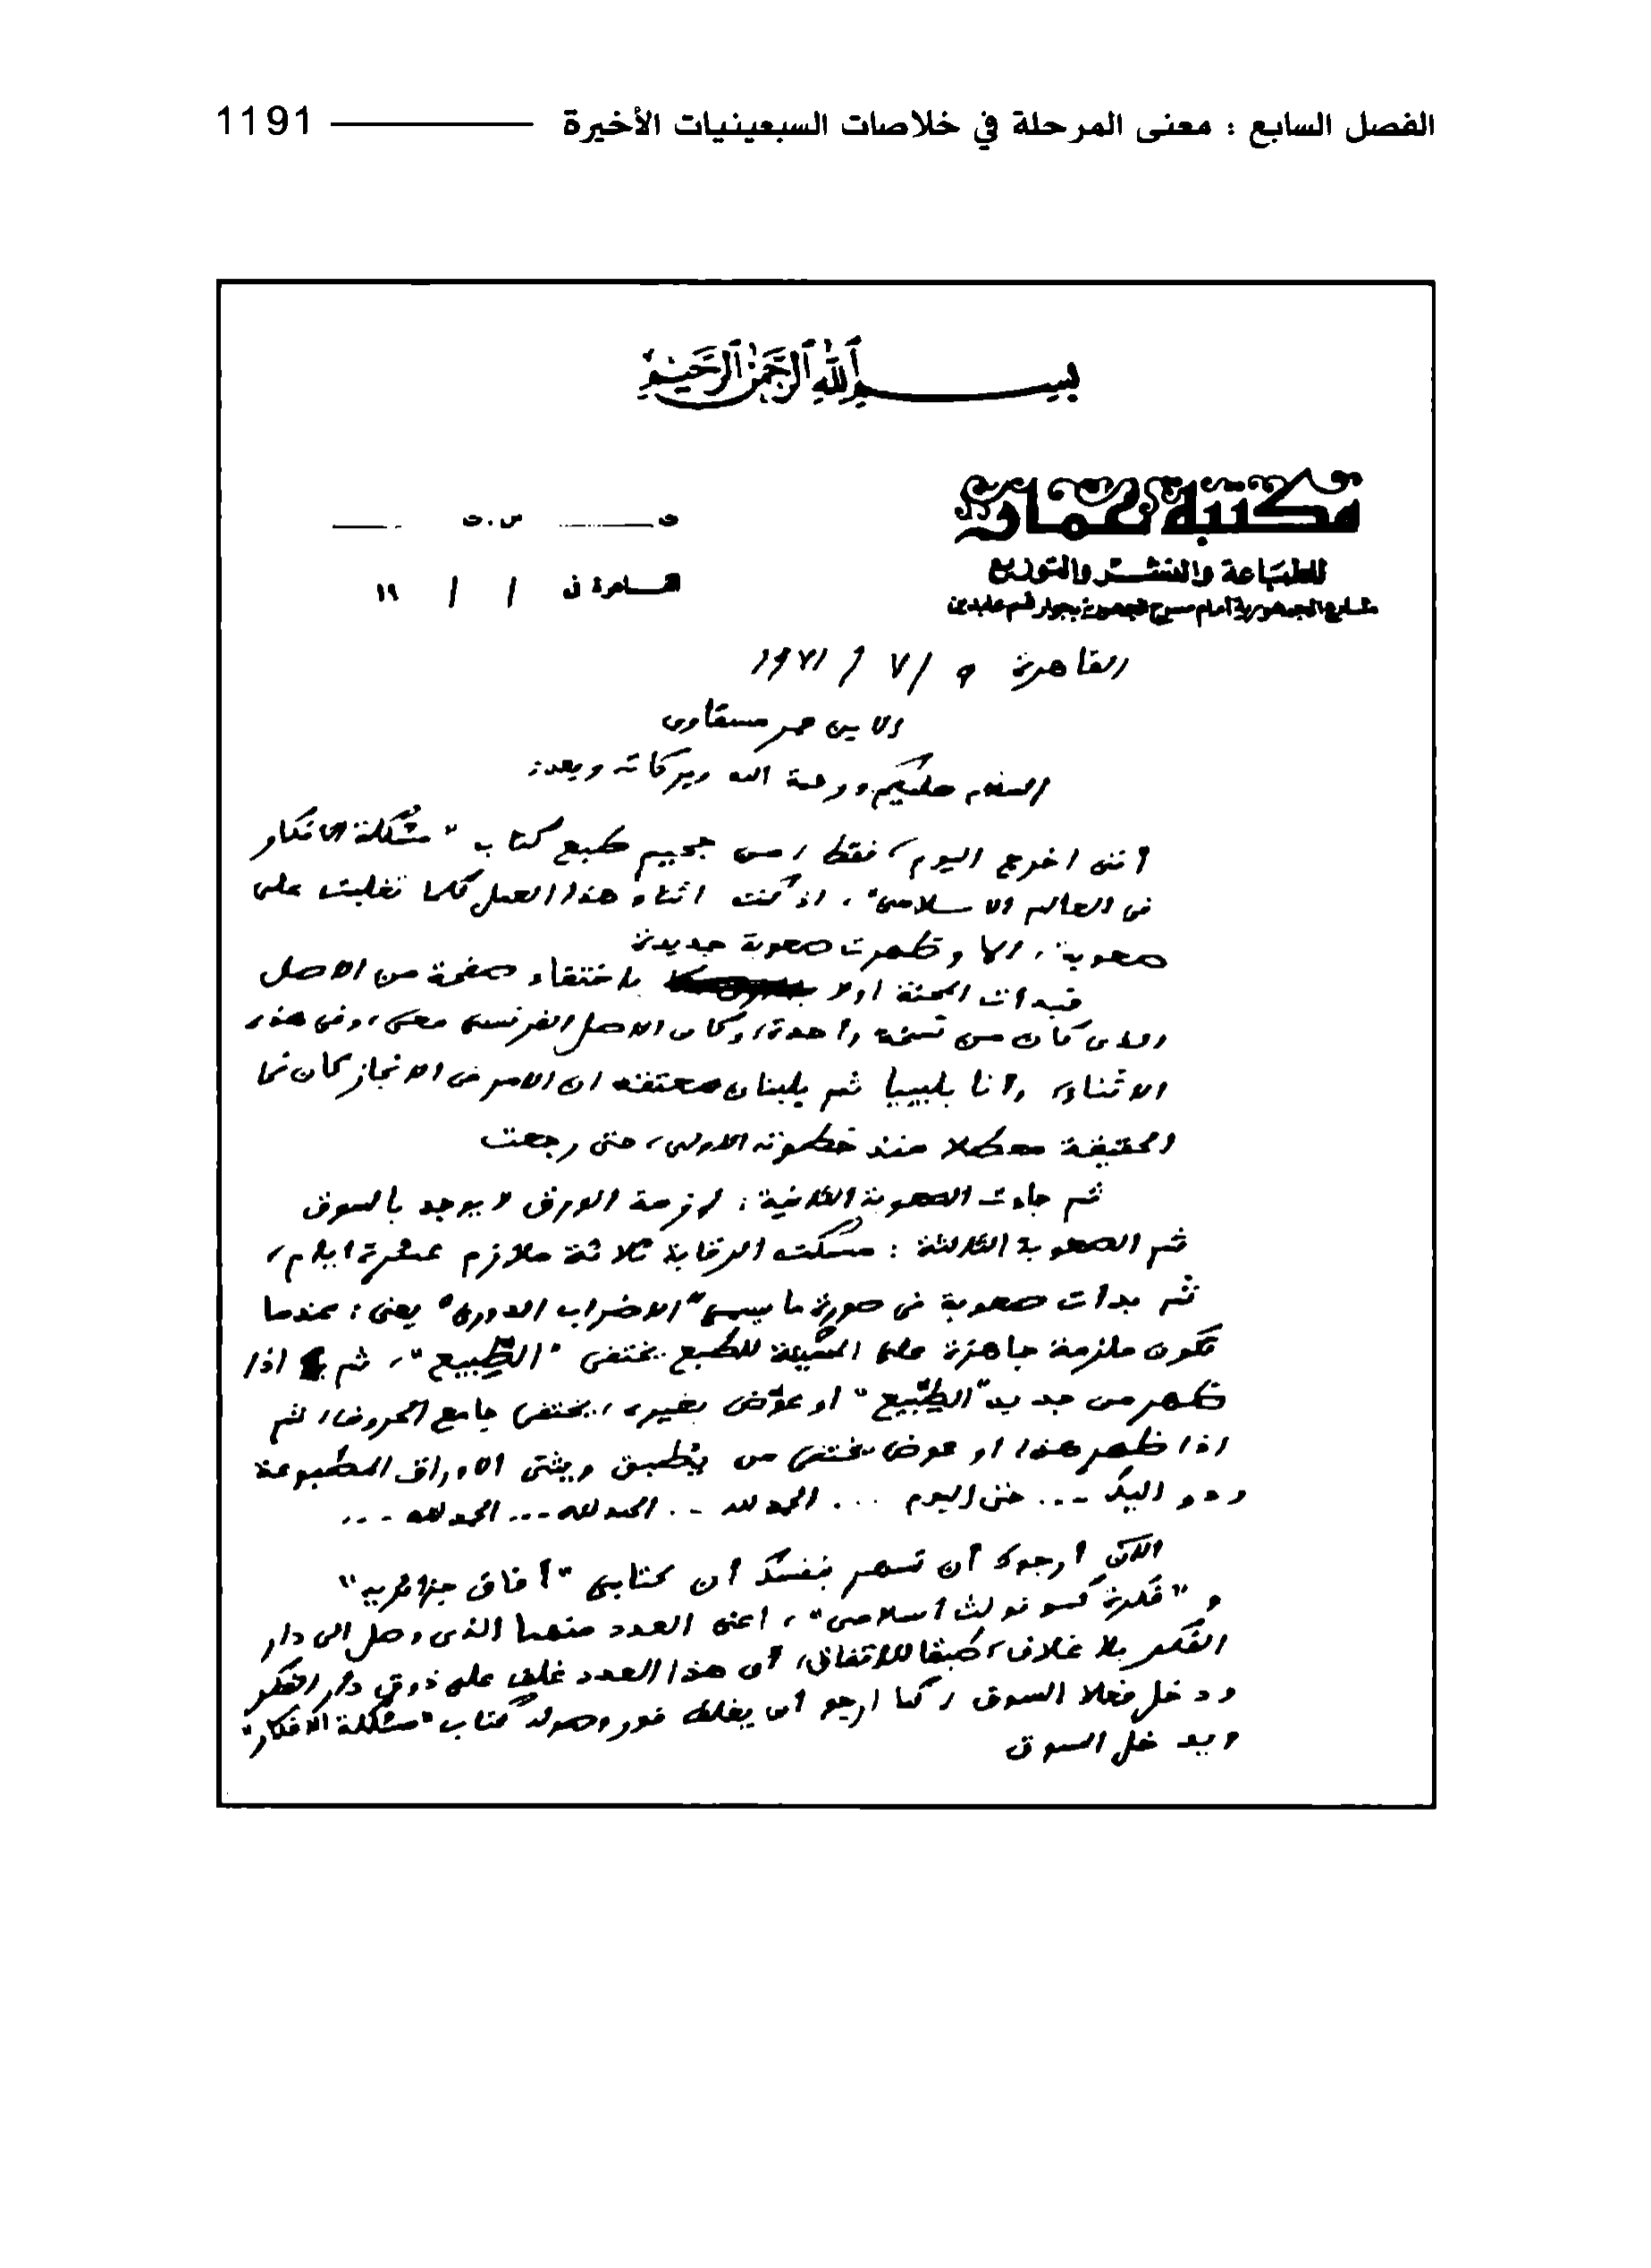 الفصل السابع : معنى المرحلة في خلاصات السبعينيات الأخيرة 1191
بسم الله الرحمن الرحيم
مكتبة عمار
للطباعة والنشر والتوزيع
شارع الجمهورية أمام مسرح الجمهورية بجوار قسم عابدين
ت س.ت
القاهرة في / / ١٩
القاهرة ٩ / ٧ / ١٩٧١
الابن عمر مسقاوى
السلام عليكم ورحمة الله وبركاته وبعد:
أننى اخرج اليوم، فقط، من جحيم طبع كتاب "مشكلة الافكار
فى العالم الاسلامى"، اذ كنت اثناء هذا العمل كلما تغلبت على
صعوبة، الا وظهرت صعوبة جديدة
فبدات المحنة اولا باختفاء صفحة من الاصل
الذى كان من نسخة واحدة، وكان الاصل الفرنسى معى، وفى هذه
الاثناء، وأنا بليبيا ثم بلبنان معتقد ان الامر فى الانجاز كان فى
الحقيقة معطلا منذ خطوته الاولى، حتى رجعت
ثم جاءت الصعوبة الثانية: ازمة الورق لا يوجد بالسوق
ثم الصعوبة الثالثة: مسكت الرقابة ثلاثة ملازم عشرة ايام،
ثم بدات صعوبة فى صورة ما يسمى "الاضراب الدورى" يعنى: عندما
تكون ملزمة جاهزة على المكينة للطبع يختفى "الطّبيع"، ثم اذا
ظهر من جديد "الطّبيع" او عوّض بغيره، يختفى جامع الحروف، ثم
اذا ظهر هذا او عوض يختفى من يُطبق ويثنى الاوراق المطبوعة
ودو اليك ... حتى اليوم ... الحمد لله ... الحمد لله ... الحمد لله ...
الآن أرجوك أن تسهر بنفسك أن كتابى "أفاق جزائرية"
و "فكرة كمنولث اسلامى"، اعنى العدد منهما الذى وصل الى دار
الفكر بلا غلاف، طبقا للاتفاق، أن هذا العدد غلف على ذوق دار الفكر
ودخل فعلا السوق، كما ارجو أن يغلف فور وصوله كتاب "مشكلة الافكار"
ويدخل السوق